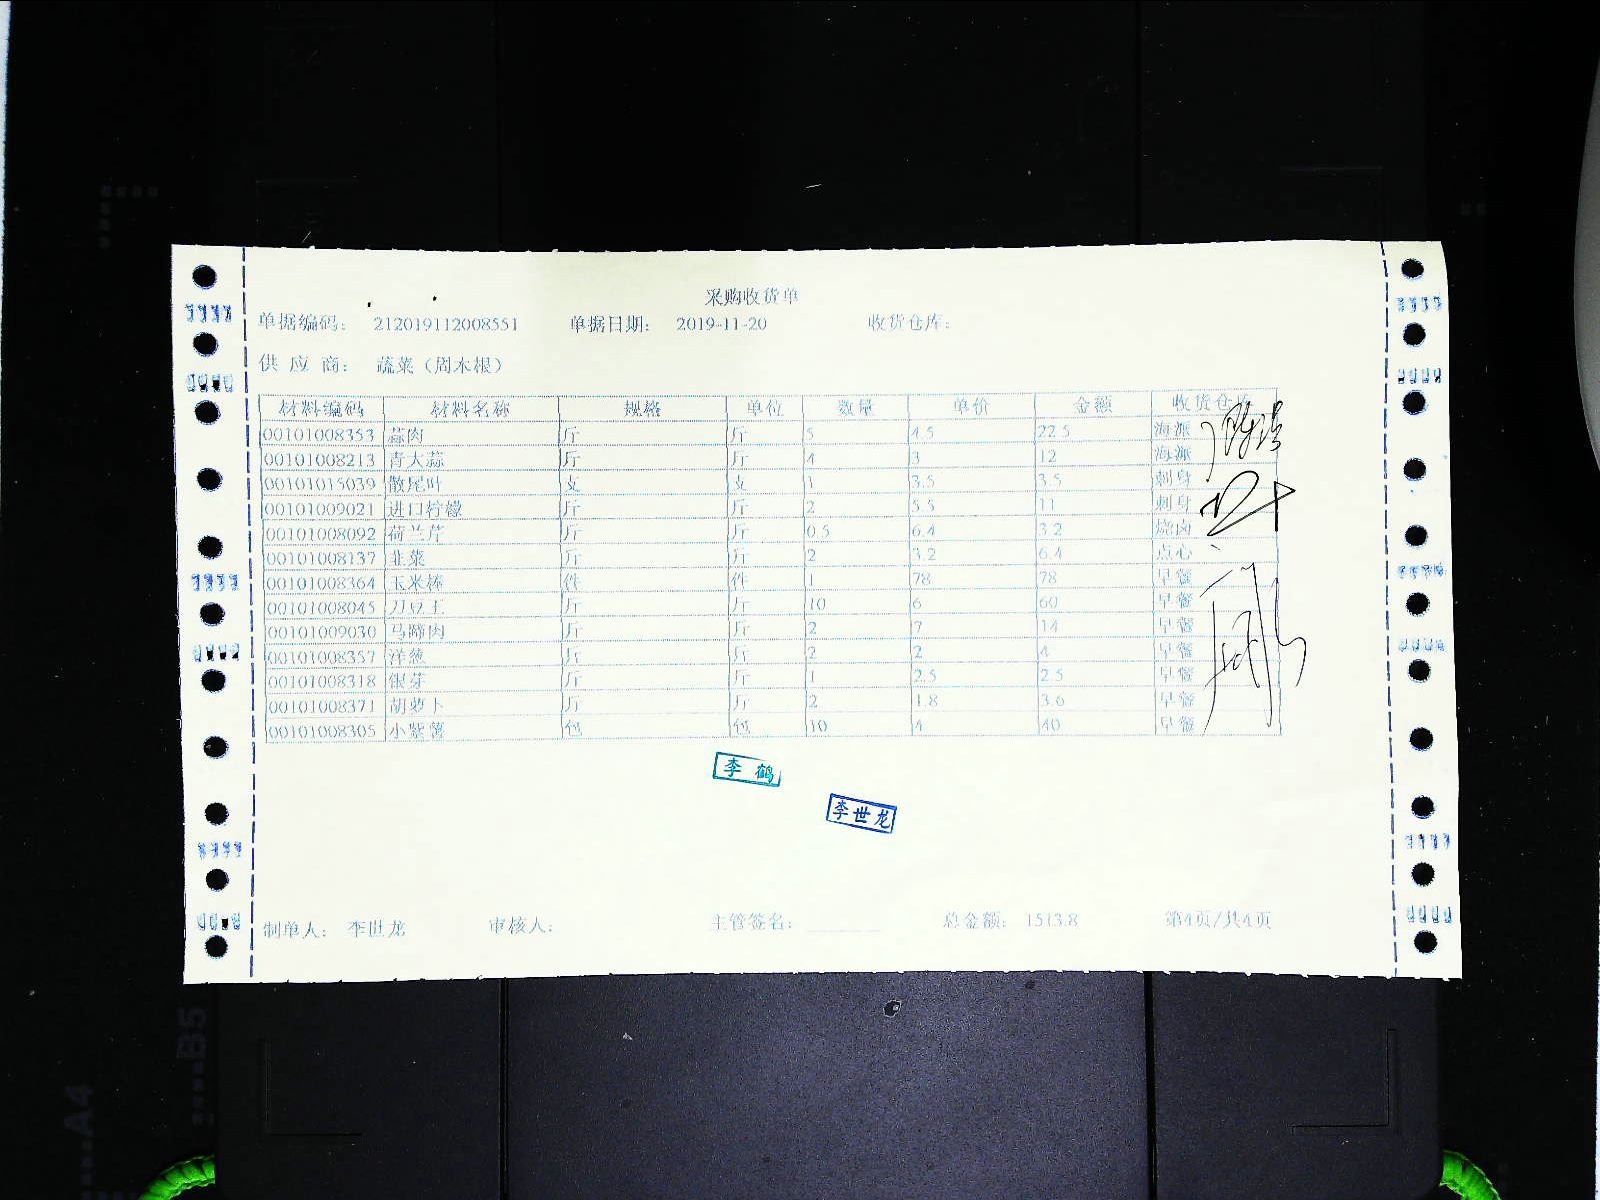 采购收货单
单据编码： 212019112008551 单据日期： 2019-11-20 收货仓库：
供 应 商： 蔬菜（周木根）
材料编码 材料名称 规格 单位 数量 单价 金额 收货仓库
00101008353 蒜肉 斤 斤 5 4.5 22.5 海派
00101008213 青大蒜 斤 斤 4 3 12 海派
00101015039 散尾叶 支 支 1 3.5 3.5 刺身
00101009021 进口柠檬 斤 斤 2 5.5 11 刺身
00101008092 荷兰芹 斤 斤 0.5 6.4 3.2 烧卤
00101008137 韭菜 斤 斤 2 3.2 6.4 点心
00101008364 玉米棒 件 件 1 78 78 早餐
00101008045 刀豆王 斤 斤 10 6 60 早餐
00101009030 马蹄肉 斤 斤 2 7 14 早餐
00101008357 洋葱 斤 斤 2 2 4 早餐
00101008318 银芽 斤 斤 1 2.5 2.5 早餐
00101008371 胡萝卜 斤 斤 2 1.8 3.6 早餐
00101008305 小紫薯 包 包 10 4 40 早餐
李 鹤
李世龙
制单人： 李世龙 审核人： 主管签名： 总金额： 1513.8 第4页/共4页
B5
A4